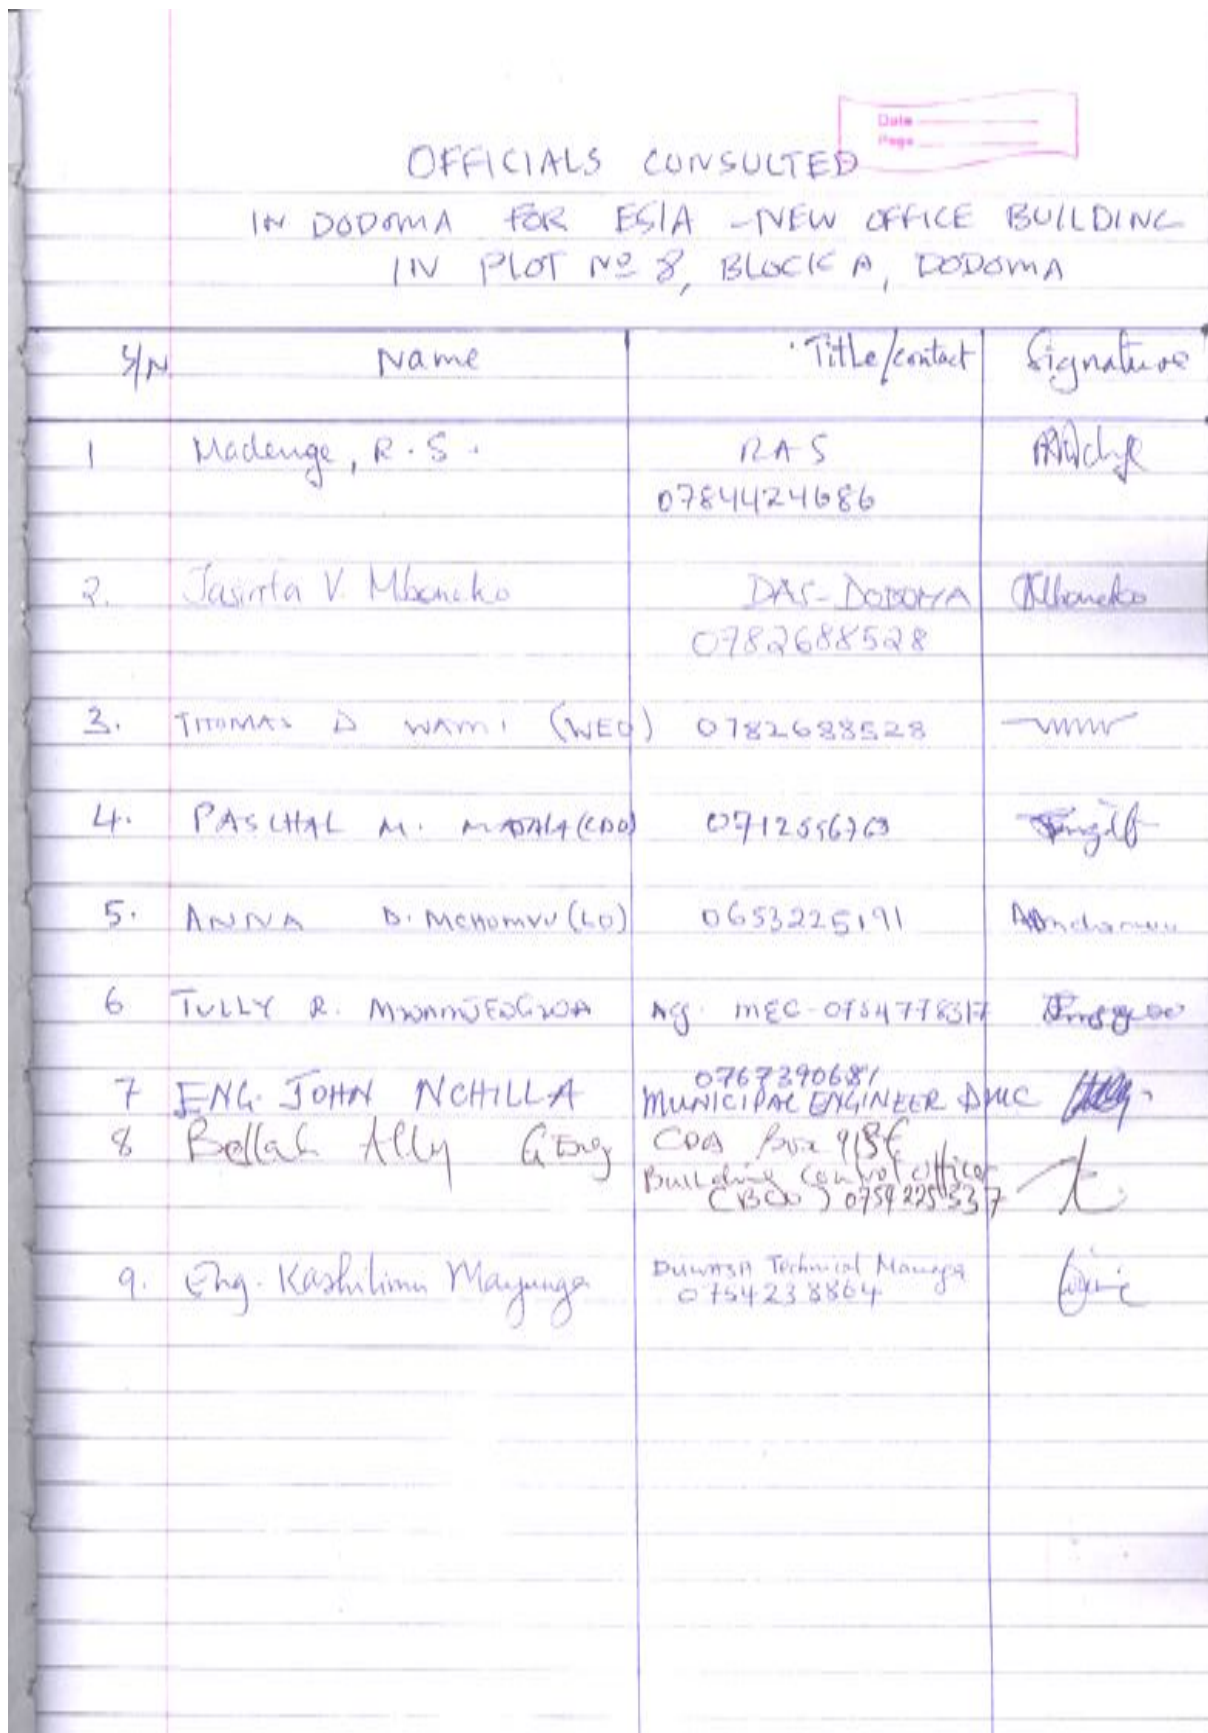 Date
Page
OFFICIALS CONSULTED
IN DODOMA FOR ESIA - NEW OFFICE BUILDING
IN PLOT Nº 8, BLOCK A, DODOMA
S/N Name Title/contact Signature
1 Madenge, R. S. RAS
0784424686
2. V. Mboneko DAS-DODOMA
0782688528
3. THOMAS D WAMI (WEO) 0782688528
4. PASCHAL M. (CDO)
5. ANNA D. MCHOMVU (LO) 0653225191
6 TULLY R. Ag. MEC - 0754778317
7 ENG. JOHN NCHILLA 0767390681
MUNICIPAL ENGINEER DMC
8 Bellah Ally CDA Box
Building Control Officer
(BCO) 0759225337
9. Eng. Kashilimu Mayunga DUWASA Technical Manager
0754238864